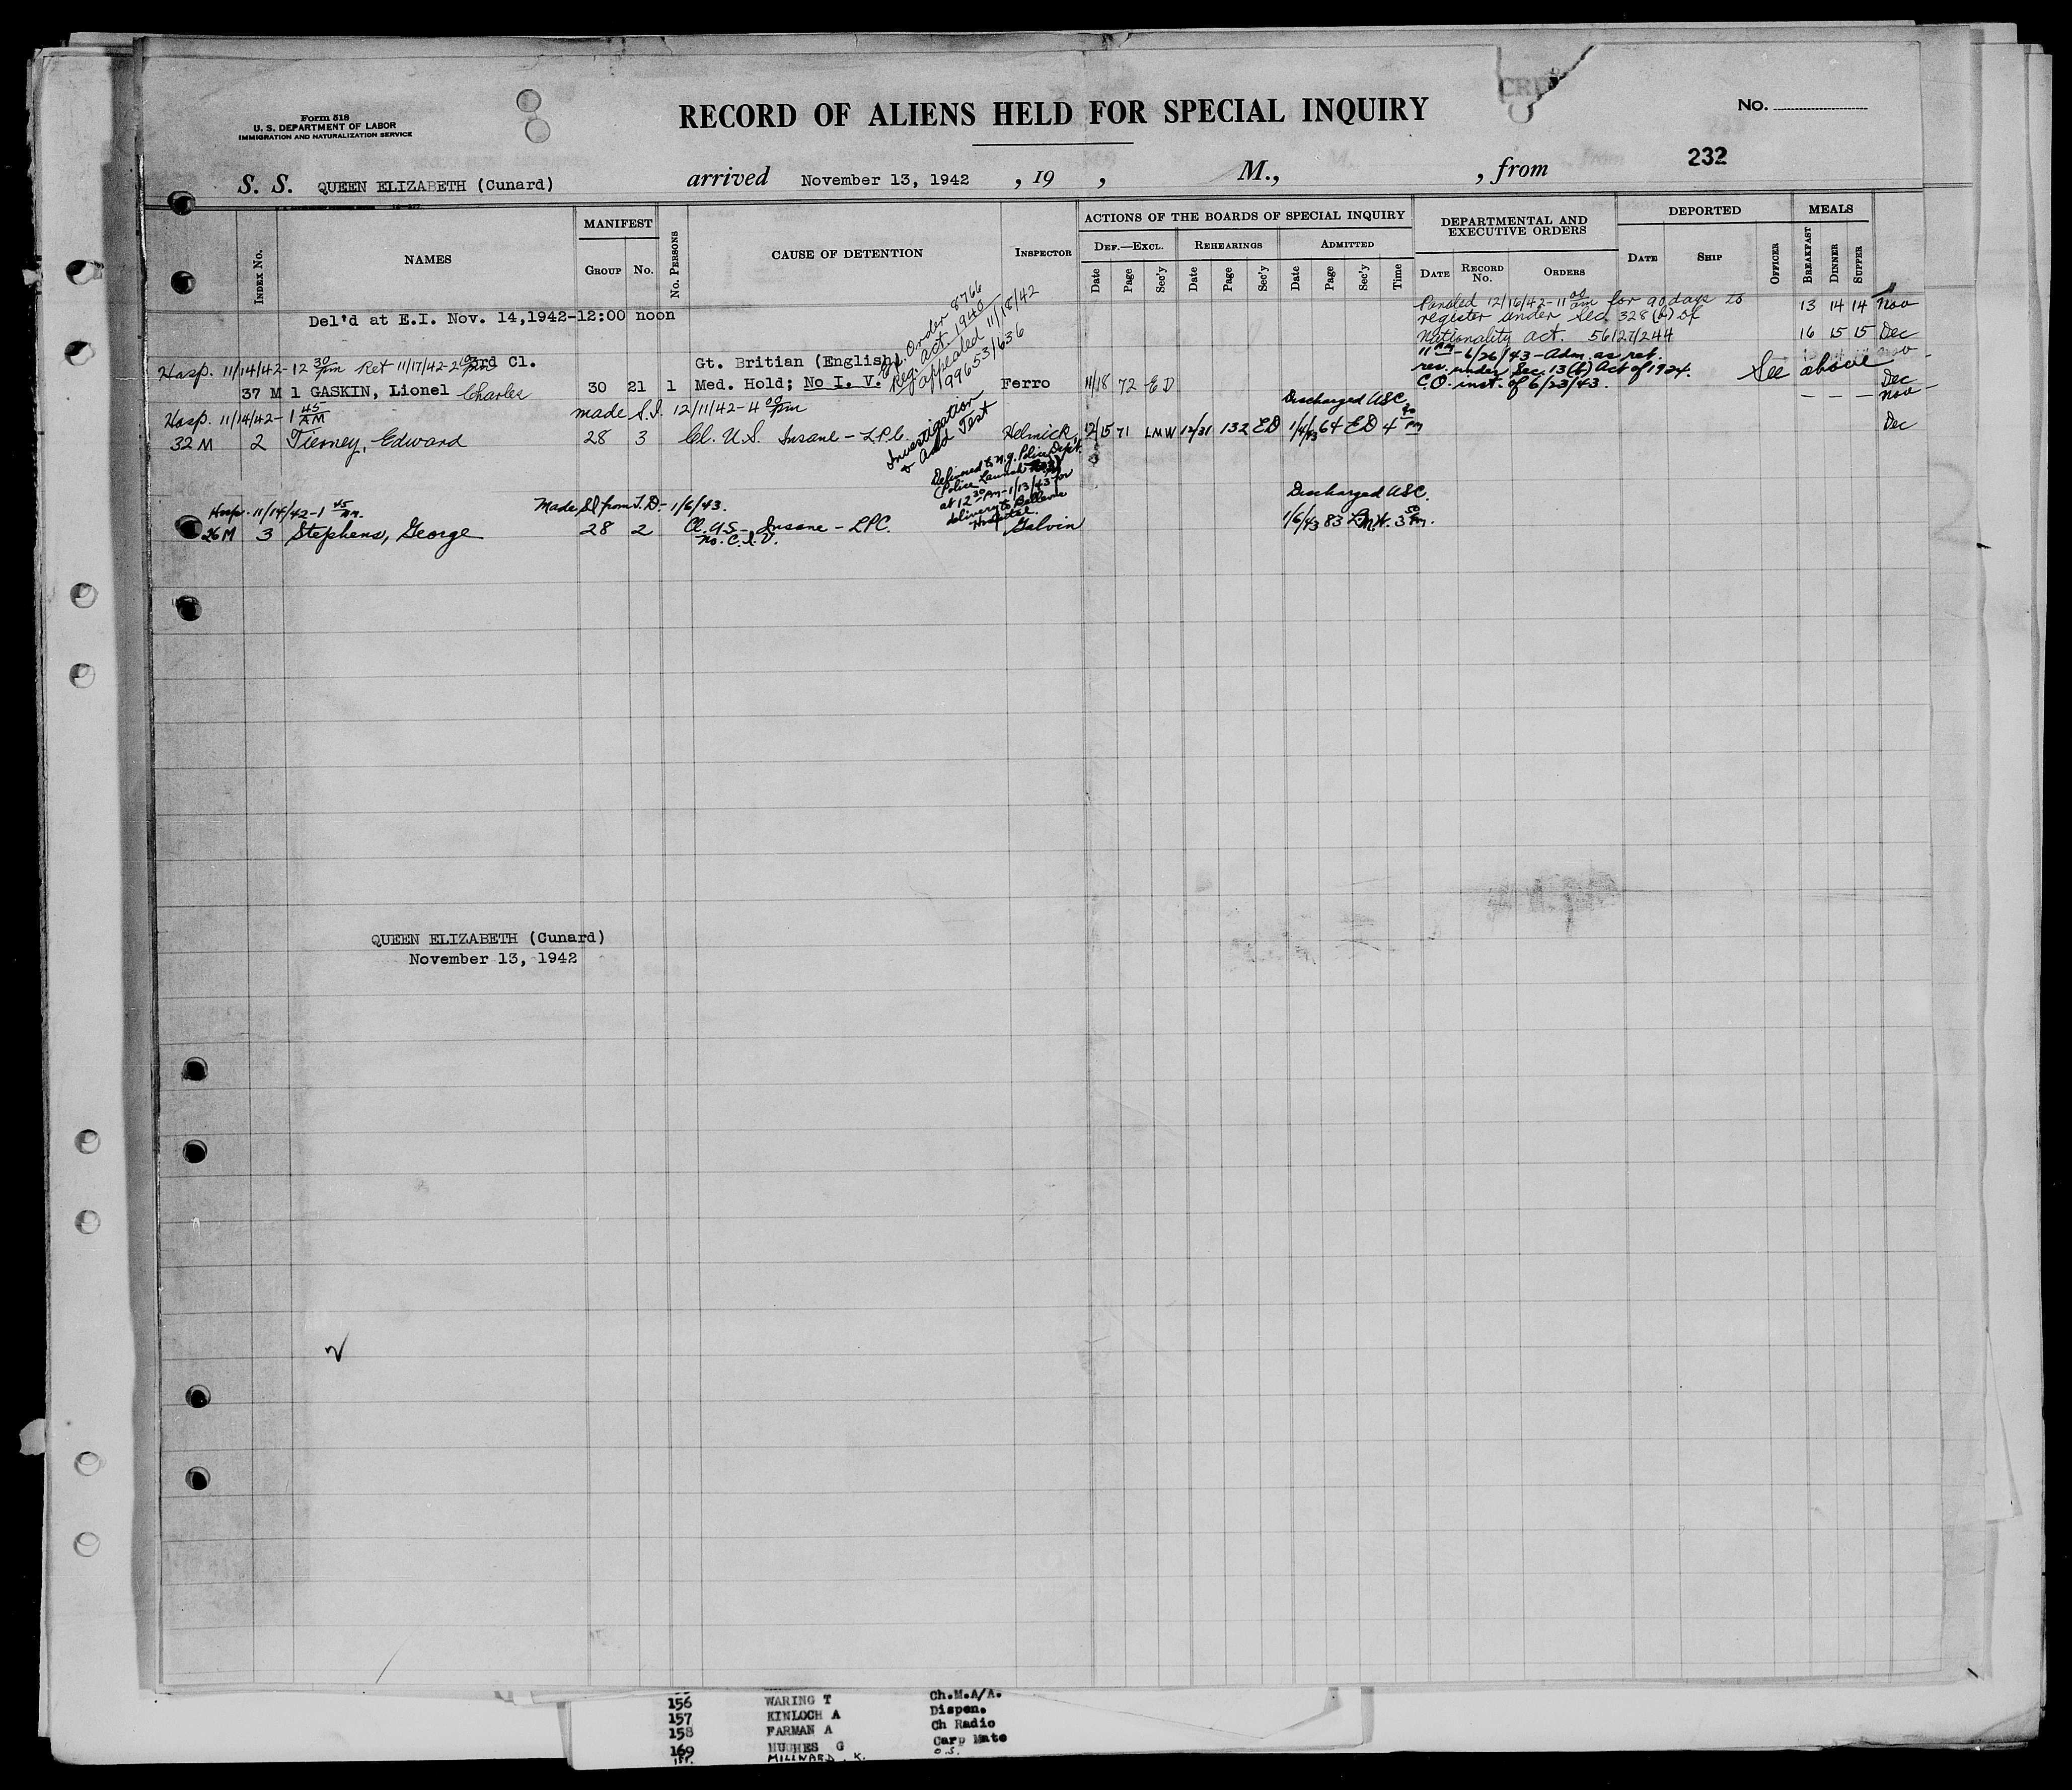 Form 518
U. S. DEPARTMENT OF LABOR
IMMIGRATION AND NATURALIZATION SERVICE
RECORD OF ALIENS HELD FOR SPECIAL INQUIRY
No.
232
S. S. QUEEN ELIZABETH (Cunard) arrived November 13, 1942 , 19 , M., , from
INDEX No.
NAMES
MANIFEST
GROUP No.
No. PERSONS
CAUSE OF DETENTION
INSPECTOR
ACTIONS OF THE BOARDS OF SPECIAL INQUIRY
DEF.—EXCL. REHEARINGS ADMITTED
Date Page Sec'y Date Page Sec'y Date Page Sec'y Time
DEPARTMENTAL AND
EXECUTIVE ORDERS
DATE RECORD No. ORDERS
DEPORTED
DATE SHIP OFFICER
MEALS
BREAKFAST DINNER SUPPER
Del'd at E.I. Nov. 14,1942-12:00 noon
Paroled 12/16/42-11 00 am for 90 days to
register under Sec. 328 (b) of
Nationality act. 56127/244
13 14 14 Nov
16 15 15 Dec
Hosp. 11/14/42-12 30 pm Ret 11/17/42-2 3rd Cl.
Gt. Britian (English)
37 M 1 GASKIN, Lionel Charles 30 21 1 Med. Hold; No I. V. Ferro 11/18 72 ED
Ex. Order 8766
Reg. act. 1940
appealed 11/18/42
99653/636
11 am-6/26/43-Adm. as ret.
res. under Sec. 13(b) Act of 1924.
C.O. inst. of 6/23/43.
See above
Dec
Nov
Hosp. 11/14/42-1 45 AM
made S.I. 12/11/42-4 00 pm
Discharged USC
32 M 2 Tierney, Edward 28 3 Cl. U.S. Insane-LPC. Helmick 12/15 71 LMW 12/31 132 ED 1/4/43 64 ED 4 pm
Dec
Investigation
& Add Test
Delivered to N.Y. Police Dept.
Police Launch
at 12 30 PM-1/13/43 for
delivery to Bellevue
Hospital.
Hosp. 11/14/42-1 45 AM.
Made SI from T.D.-1/6/43.
Discharged USC.
26 M 3 Stephens, George 28 2 Cl. US-Insane-LPC. Galvin 1/6/43 83 LMW. 3 50 Pm.
No. C.I.V.
QUEEN ELIZABETH (Cunard)
November 13, 1942
156 WARING T Ch.M.A/A.
157 KINLOCH A Dispen.
158 FARMAN A Ch Radio
169 HUGHES G Carp Mate
MILLWARD. K. O.S.